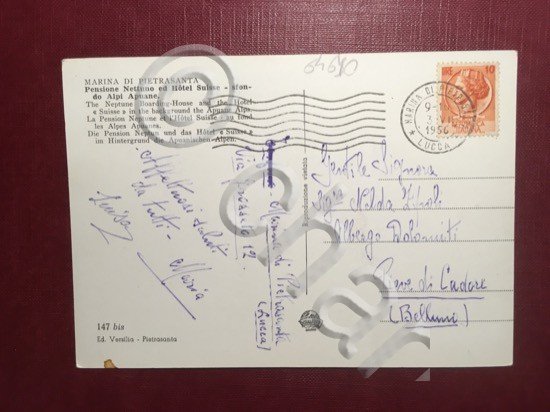 64690
MARINA DI PIETRASANTA
Pensione Nettuno ed Hôtel Suisse - sfon-
do Alpi Apuane.
The Neptune Boarding-House and the Hotel
« Suisse » in the background the Apuane Alps.
La Pension Neptune et l'Hôtel Suisse - au fond
les Alpes Apuanes.
Die Pension Neptun und das Hôtel « Suisse »
im Hintergrund die Apuanischen-Alpen.
Affettuosi saluti
da tutti -
Maria
Luisa
Marina di Pietrasanta
(Lucca)
Riproduzione vietata
MARINA DI PIETRASANTA
1956
LUCCA
Gentile Signora
Nilda
Albergo Dolomiti
Pieve di Cadore
(Belluno)
147 bis
Ed. Versilia - Pietrasanta
© Char